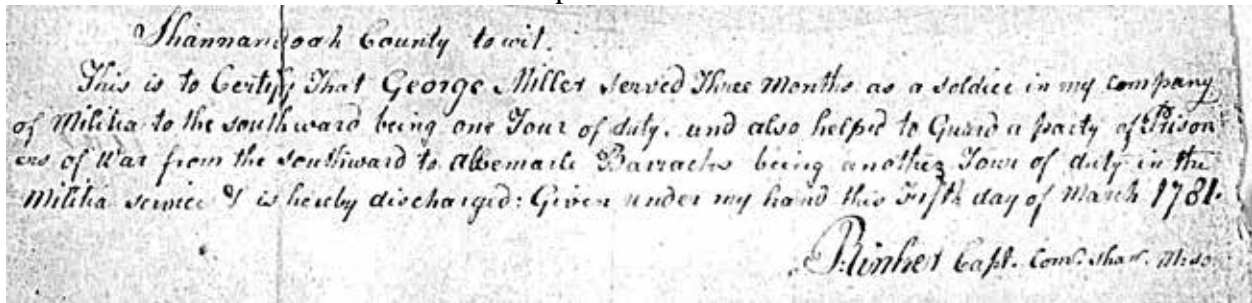 Shannandoah County to wit.
This is to Certify That George Miller served Three Months as a soldier in my company
of Militia to the southward being one Tour of duty. and also helped to Guard a party of Prison
ers of War from the southward to Albemarle Barracks being another Tour of duty in the
Militia service & is hereby discharged: Given under my hand this Fifth day of March 1781.
Capt. Com.